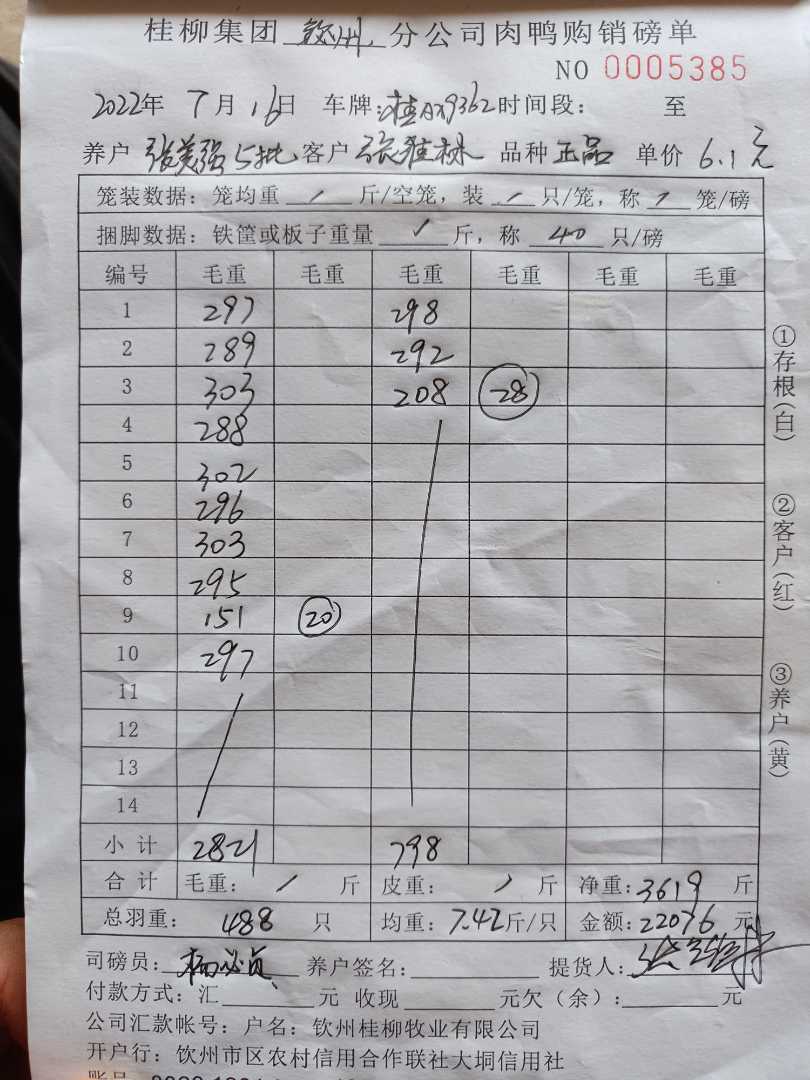 桂柳集团 钦州 分公司肉鸭购销磅单
NO 0005385
2022年 7月16日 车牌: 时间段: 至
养户 张美强5批 客户 张雅林 品种 正品 单价 6.1元
笼装数据: 笼均重 / 斤/空笼, 装 / 只/笼, 称 / 笼/磅
捆脚数据: 铁筐或板子重量 / 斤, 称 40 只/磅
编号 毛重 毛重 毛重 毛重 毛重 毛重
1 297 298
2 289 292
3 303 208 28
4 288
5 302
6 296
7 303
8 295
9 151 20
10 297
11
12
13
14
小计 2821 798
合计 毛重: / 斤 皮重: / 斤 净重: 3619 斤
总羽重: 488 只 均重: 7.42斤/只 金额: 22076 元
司磅员: 养户签名: 提货人:
付款方式: 汇 元 收现 元欠(余): 元
公司汇款帐号: 户名: 钦州桂柳牧业有限公司
开户行: 钦州市区农村信用合作联社大垌信用社
①存根(白)
②客户(红)
③养户(黄)